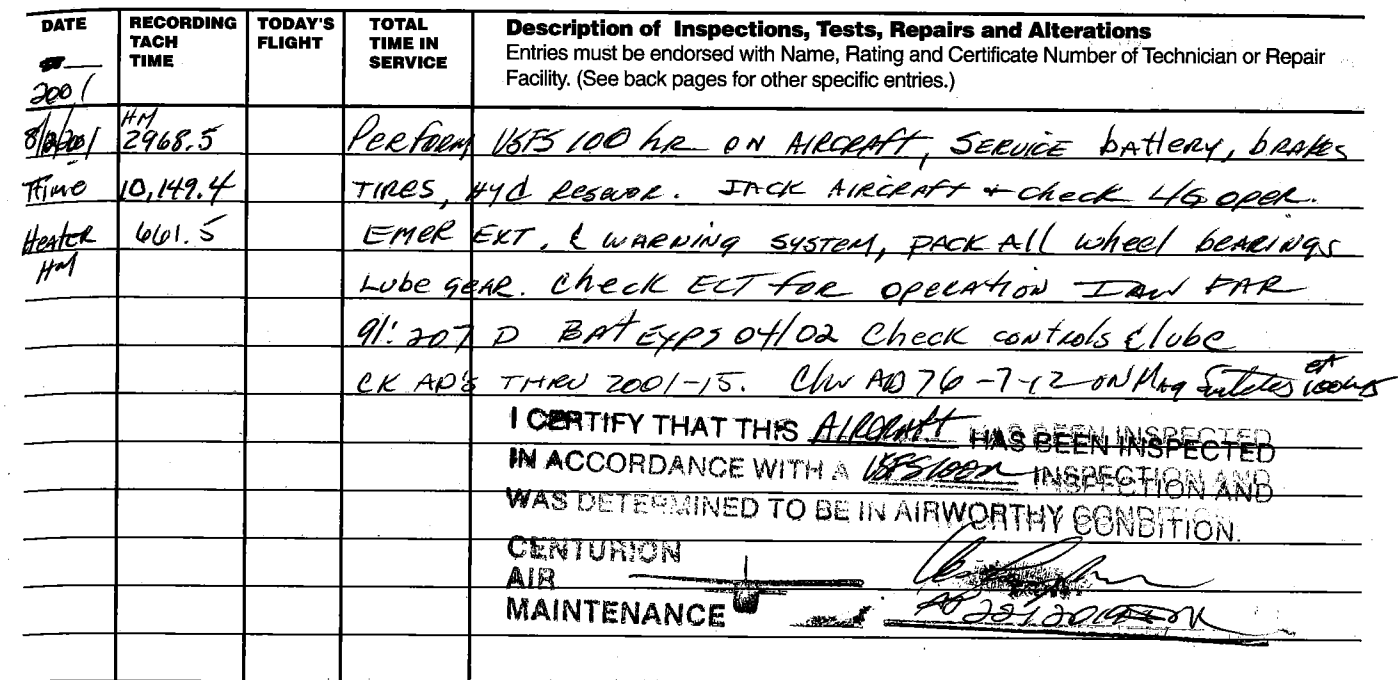 DATE RECORDING TODAY'S TOTAL Description of Inspections, Tests, Repairs and Alterations
TACH FLIGHT TIME IN Entries must be endorsed with Name, Rating and Certificate Number of Technician or Repair
TIME SERVICE Facility. (See back pages for other specific entries.)
2001
HM
2968.5 PERFORM USFS 100 hR ON AIRCRAFT, SERVICE bAttery, bRAKES
TTime 10,149.4 TIRES, HYd RESEVOR. JACK AIRCRAFT + check L/G OPER.
HEATER 661.5 EMER EXT, & WARNING SYSTEM, PACK All wheel bEARINGS
HM
Lube gEAR. Check ELT FOR OPERATION IAW FAR
91.207 D BAt EXPS 04/02 Check contRols & lube
CK AD'S THRU 2001-15. C/W AD 76-7-12 ON MAg Switches EA 100HRS
I CERTIFY THAT THIS AIRCRAFT HAS BEEN INSPECTED
IN ACCORDANCE WITH A USFS 100HR INSPECTION AND
WAS DETERMINED TO BE IN AIRWORTHY CONDITION.
CENTURION
AIR
MAINTENANCE